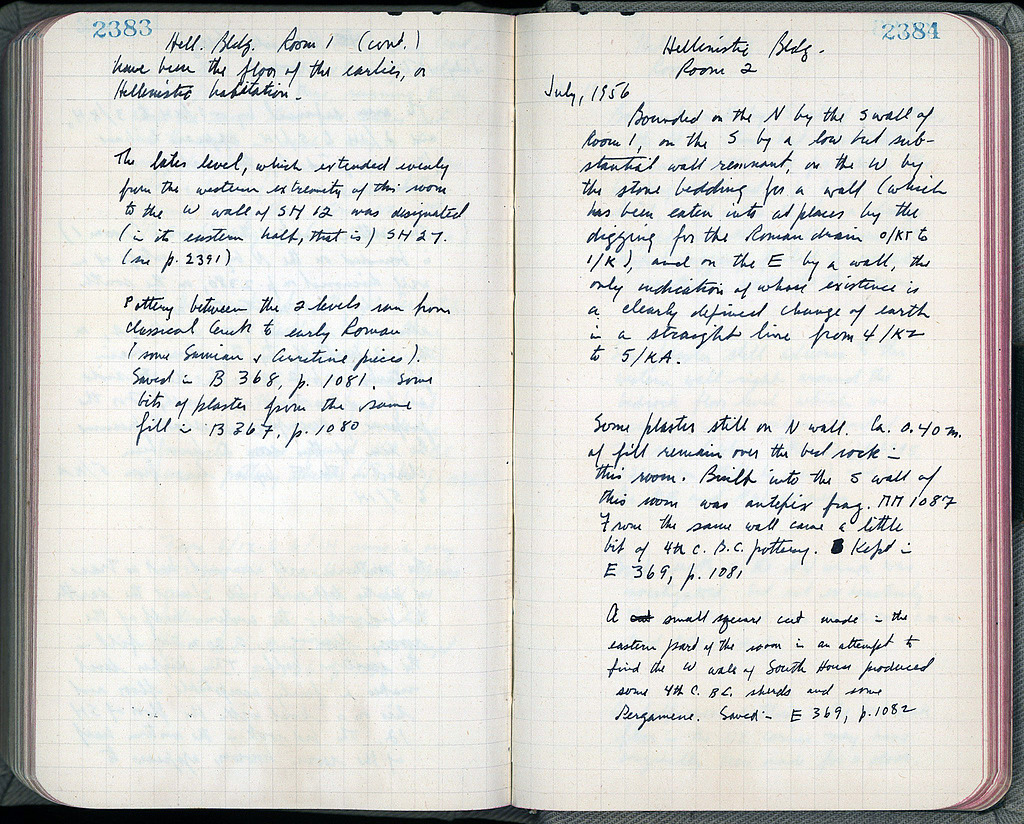 2383
Hell. Bldg. Room 1 (cont.)
have been the floor of the earlier, or
Hellenistic habitation.
The later level, which extended evenly
from the western extremity of this room
to the W wall of SH 12 was designated
(in its eastern half, that is) SH 27.
(see p. 2391)
Pottery between the 2 levels ran from
classical Greek to early Roman
(some Samian & Arretine pieces).
Saved in B 368, p. 1081. Some
bits of plaster from the same
fill in B 367, p. 1080
2384
Hellenistic Bldg.
Room 2
July, 1956
Bounded on the N by the S wall of
Room 1, on the S by a low but sub-
stantial wall remnant, on the W by
the stone bedding for a wall (which
has been eaten into at places by the
digging for the Roman drain 0/KT to
1/K), and on the E by a wall, the
only indication of whose existence is
a clearly defined change of earth
in a straight line from 4/KZ
to 5/KA.
Some plaster still on N wall. Ca. 0.40 m.
of fill remain over the bed rock in
this room. Built into the S wall of
this room was antefix frag. MM 1087
From the same wall came a little
bit of 4th c. B.C. pottery. Kept in
E 369, p. 1081
A small square cut made in the
eastern part of the room in an attempt to
find the W wall of South House produced
some 4th C. B.C. sherds and some
Pergamene. Saved in E 369, p. 1082